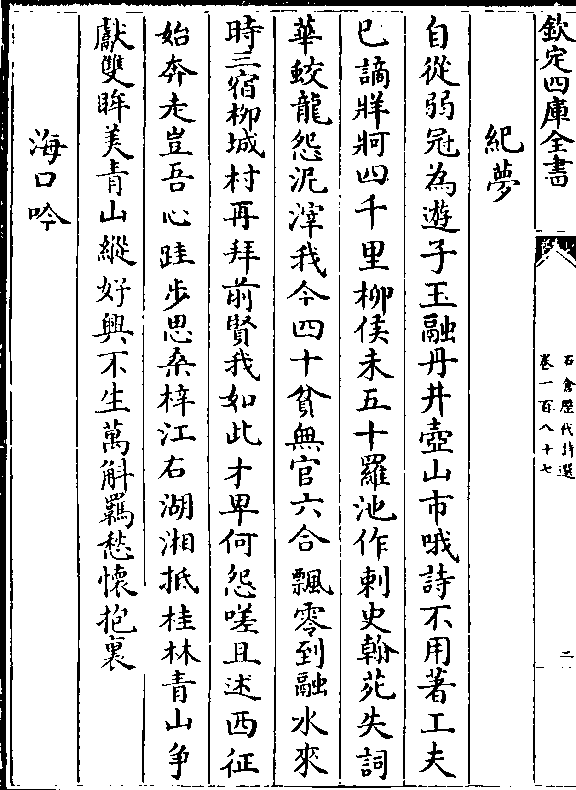 欽定四庫全書
石倉歴代詩選
卷一百八十七
二
紀夢
自從弱冠為遊子玉融丹井壺山市哦詩不用著工夫
已謫牂牁四千里柳侯未五十羅池作刺史翰苑失詞
華蛟龍怨泥滓我今四十貧無官六合飄零到融水來
時三宿柳城村再拜前賢我如此才卑何怨嗟且述西征
始奔走豈吾心跬步思桑梓江右湖湘抵桂林青山争
獻雙眸美青山縱好興不生萬斛羈愁懷抱裏
海口吟